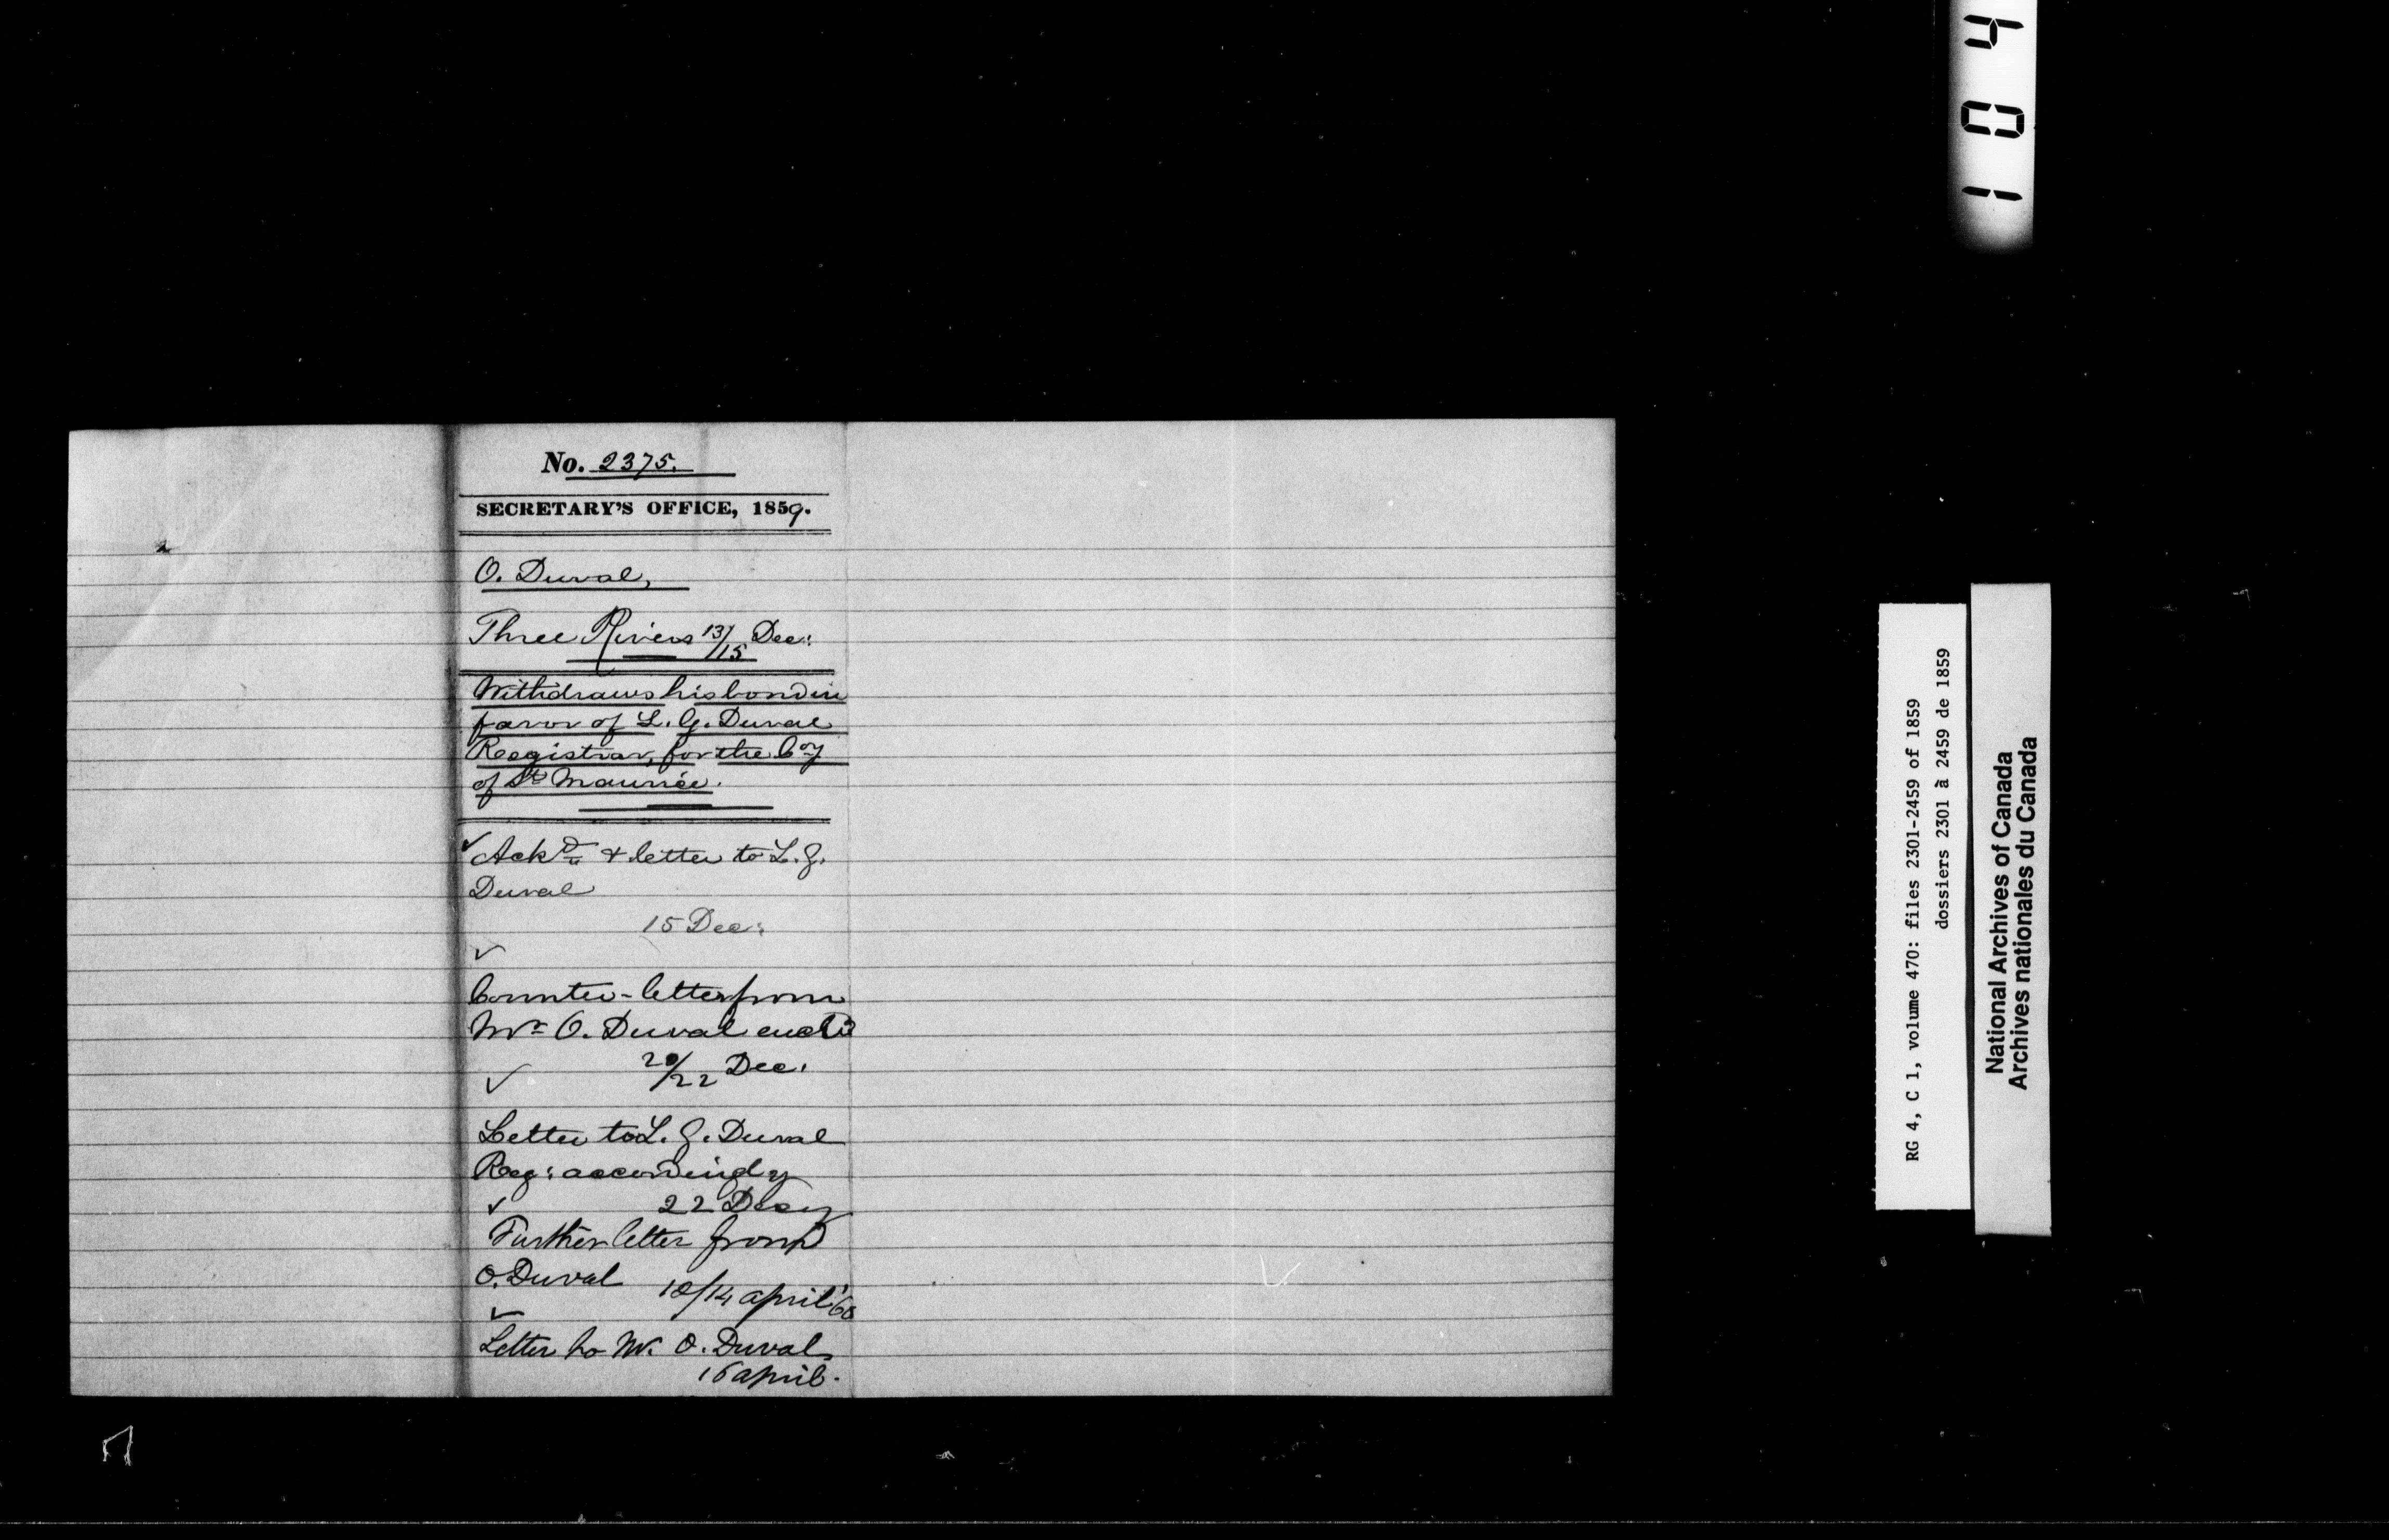 No. 2375.
SECRETARY'S OFFICE, 1859.
O. Duval,
Three Rivers 13/15 Dec:
Withdraws his bond in
favor of L. G. Duval
Registrar, for the Coy
of St Maurice.
Ackd & letter to L. G.
Duval
15 Dec:
Counter-letter from
Mr O. Duval
20/22 Dec.
Letter to L. G. Duval
Reg: accordingly
22 Decr
Further letter from
O. Duval 10/14 april '60
Letter to Mr. O. Duval
16 april.
104
RG 4, C 1, volume 470: files 2301-2459 of 1859
dossiers 2301 à 2459 de 1859
National Archives of Canada
Archives nationales du Canada